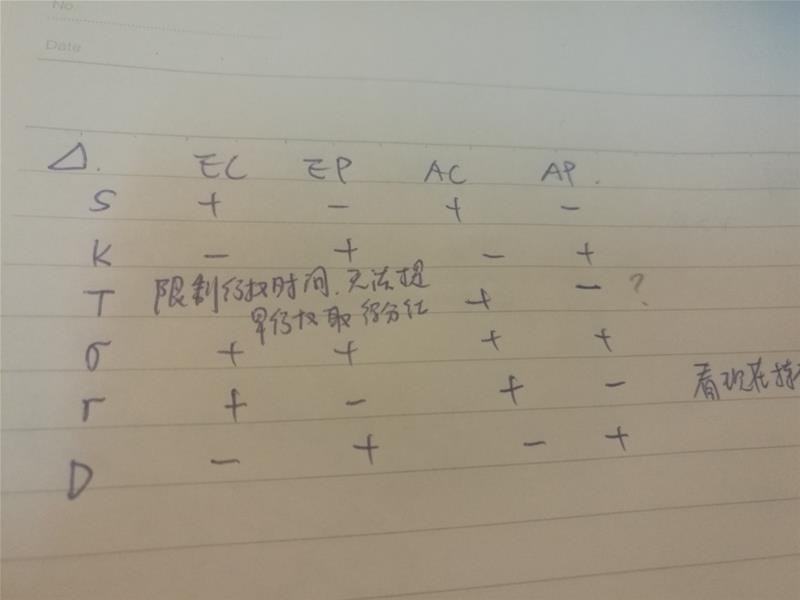 No.
Date
△. EC EP AC AP.
S + − + −
K − + − +
T 限制行权时间.无法提 + − ?
早行权取得分红
σ + + + +
r + − + − 看现在持
D − + − +